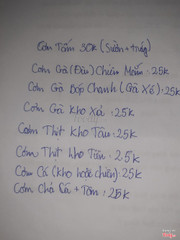 Cơm Tấm 30K (Sườn + trứng)
Cơm Gà (Đùi) Chiên Mắm : 25k
Cơm Gà Bóp Chanh (Gà Xé) : 25k
Cơm Gà Kho Xả : 25k
Cơm Thịt Kho Tàu : 25k
Cơm Thịt Kho Tiêu : 25k
Cơm Cá (kho hoặc chiên) : 25k
Cơm Chả Cá + Tôm : 25k